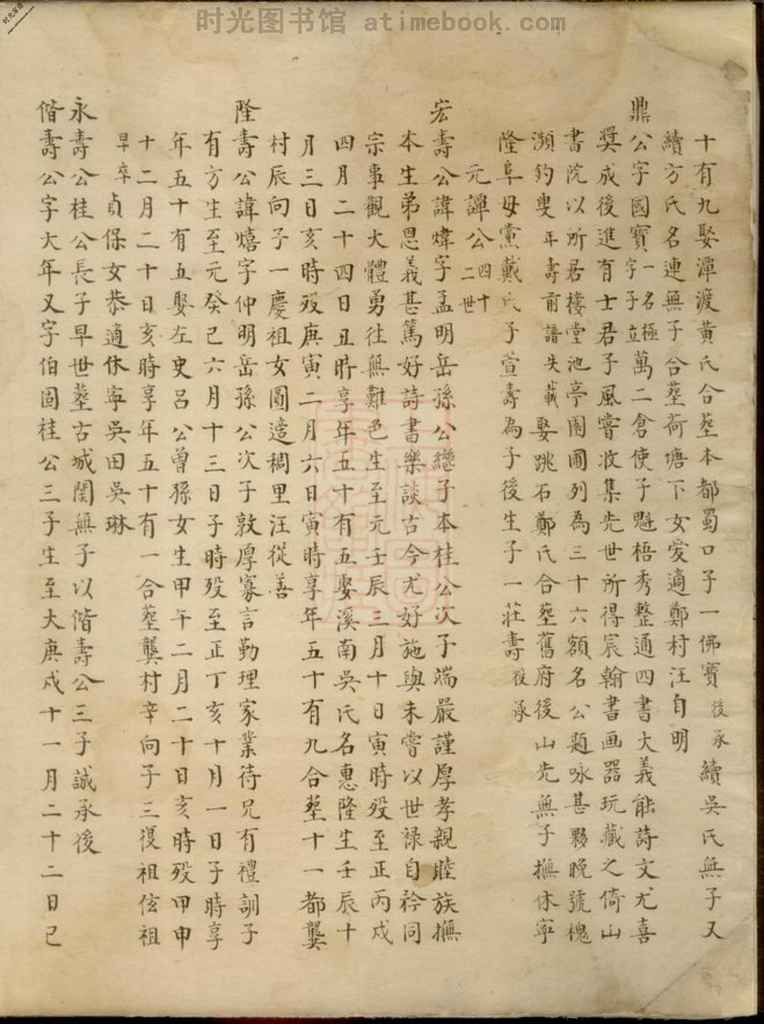 时光图书馆 atimebook.com
十有九娶潭渡黃氏合塟本都蜀口子一佛寶後承續吳氏無子又
續方氏名連無子合塟荷塘下女爱適鄭村汪自明
鼎公字國寶一名極字子立萬二倉使子魁梧秀整通四書大義能詩文尤喜
奬成後進有士君子風嘗收集先世所得宸翰書画器玩藏之倚山
書院以所居樓堂池亭園圃列為三十六額名公題咏甚夥晚號槐
瀕釣叟年壽前譜失載娶跳石鄭氏合塟舊府後山先無子撫休寧
隆阜母黨戴氏子萱壽為子後生子一莊壽後承
元諱公四十二世
宏壽公諱煒字孟明岳孫公繼子本桂公次子端嚴謹厚孝親睦族撫
本生弟恩義甚篤好詩書樂談古今尤好施與未嘗以世祿自矜同
宗事觀大體勇往無難色生至元壬辰三月十日寅時歿至正丙戌
四月二十四日丑時享年五十有五娶溪南吳氏名惠隆生壬辰十
月三日亥時歿庚寅二月六日寅時享年五十有九合塟十一都龔
村辰向子一慶祖女圓適稠里汪從善
隆壽公諱熺字仲明岳孫公次子敦厚寡言勤理家業待兄有禮訓子
有方生至元癸巳六月十三日子時歿至正丁亥十月一日子時享
年五十有五娶左史呂公曾孫女生甲午二月二十日亥時歿甲申
十二月二十日亥時享年五十有一合塟龔村辛向子三復祖伭祖
早卒貞保女恭適休寧吳田吳琳
永壽公桂公長子早世塟古城関無子以偕壽公三子誠承後
偕壽公字大年又字伯固桂公三子生至大庚戌十一月二十二日已